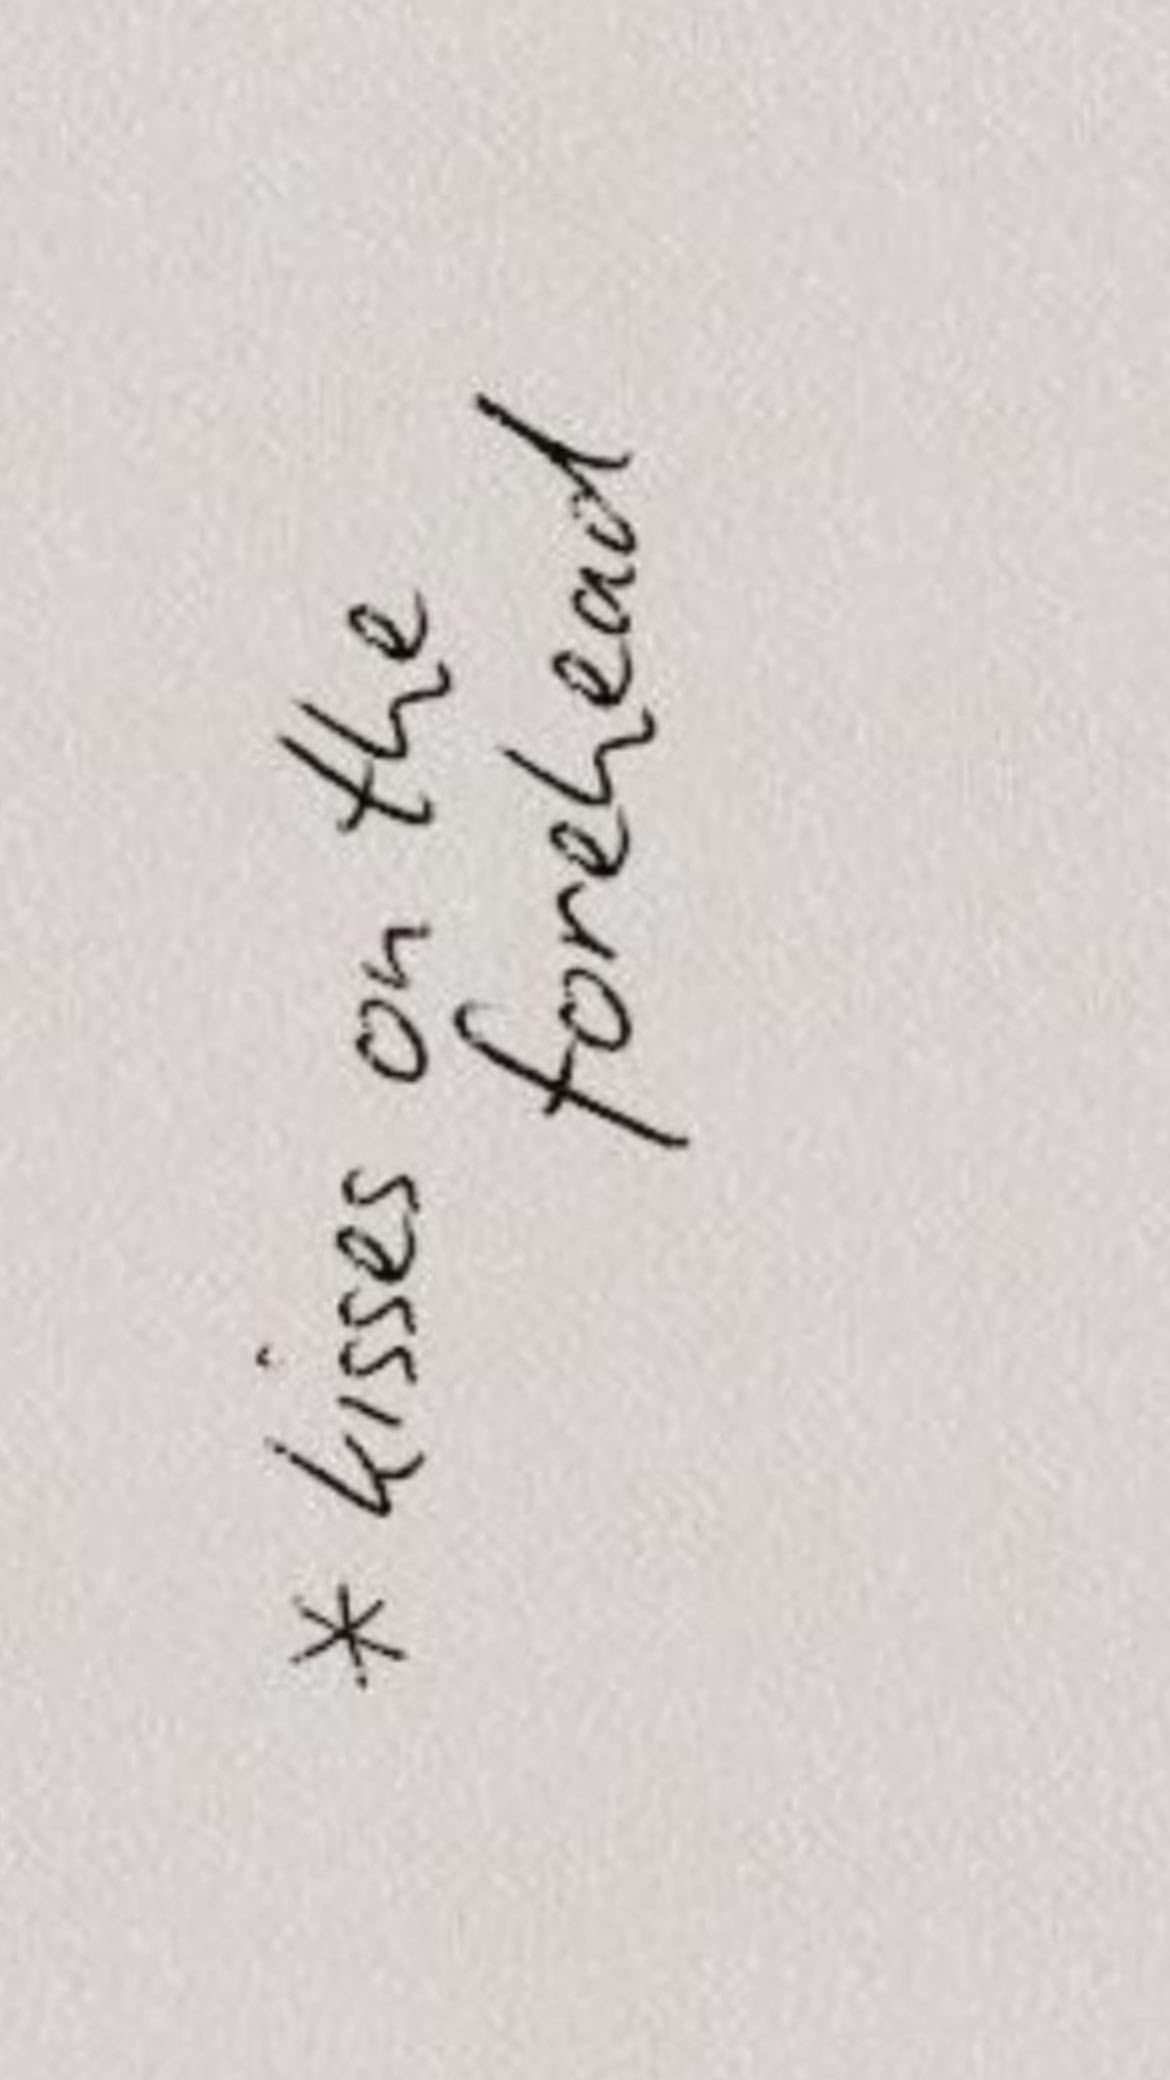 * kisses on the
forehead